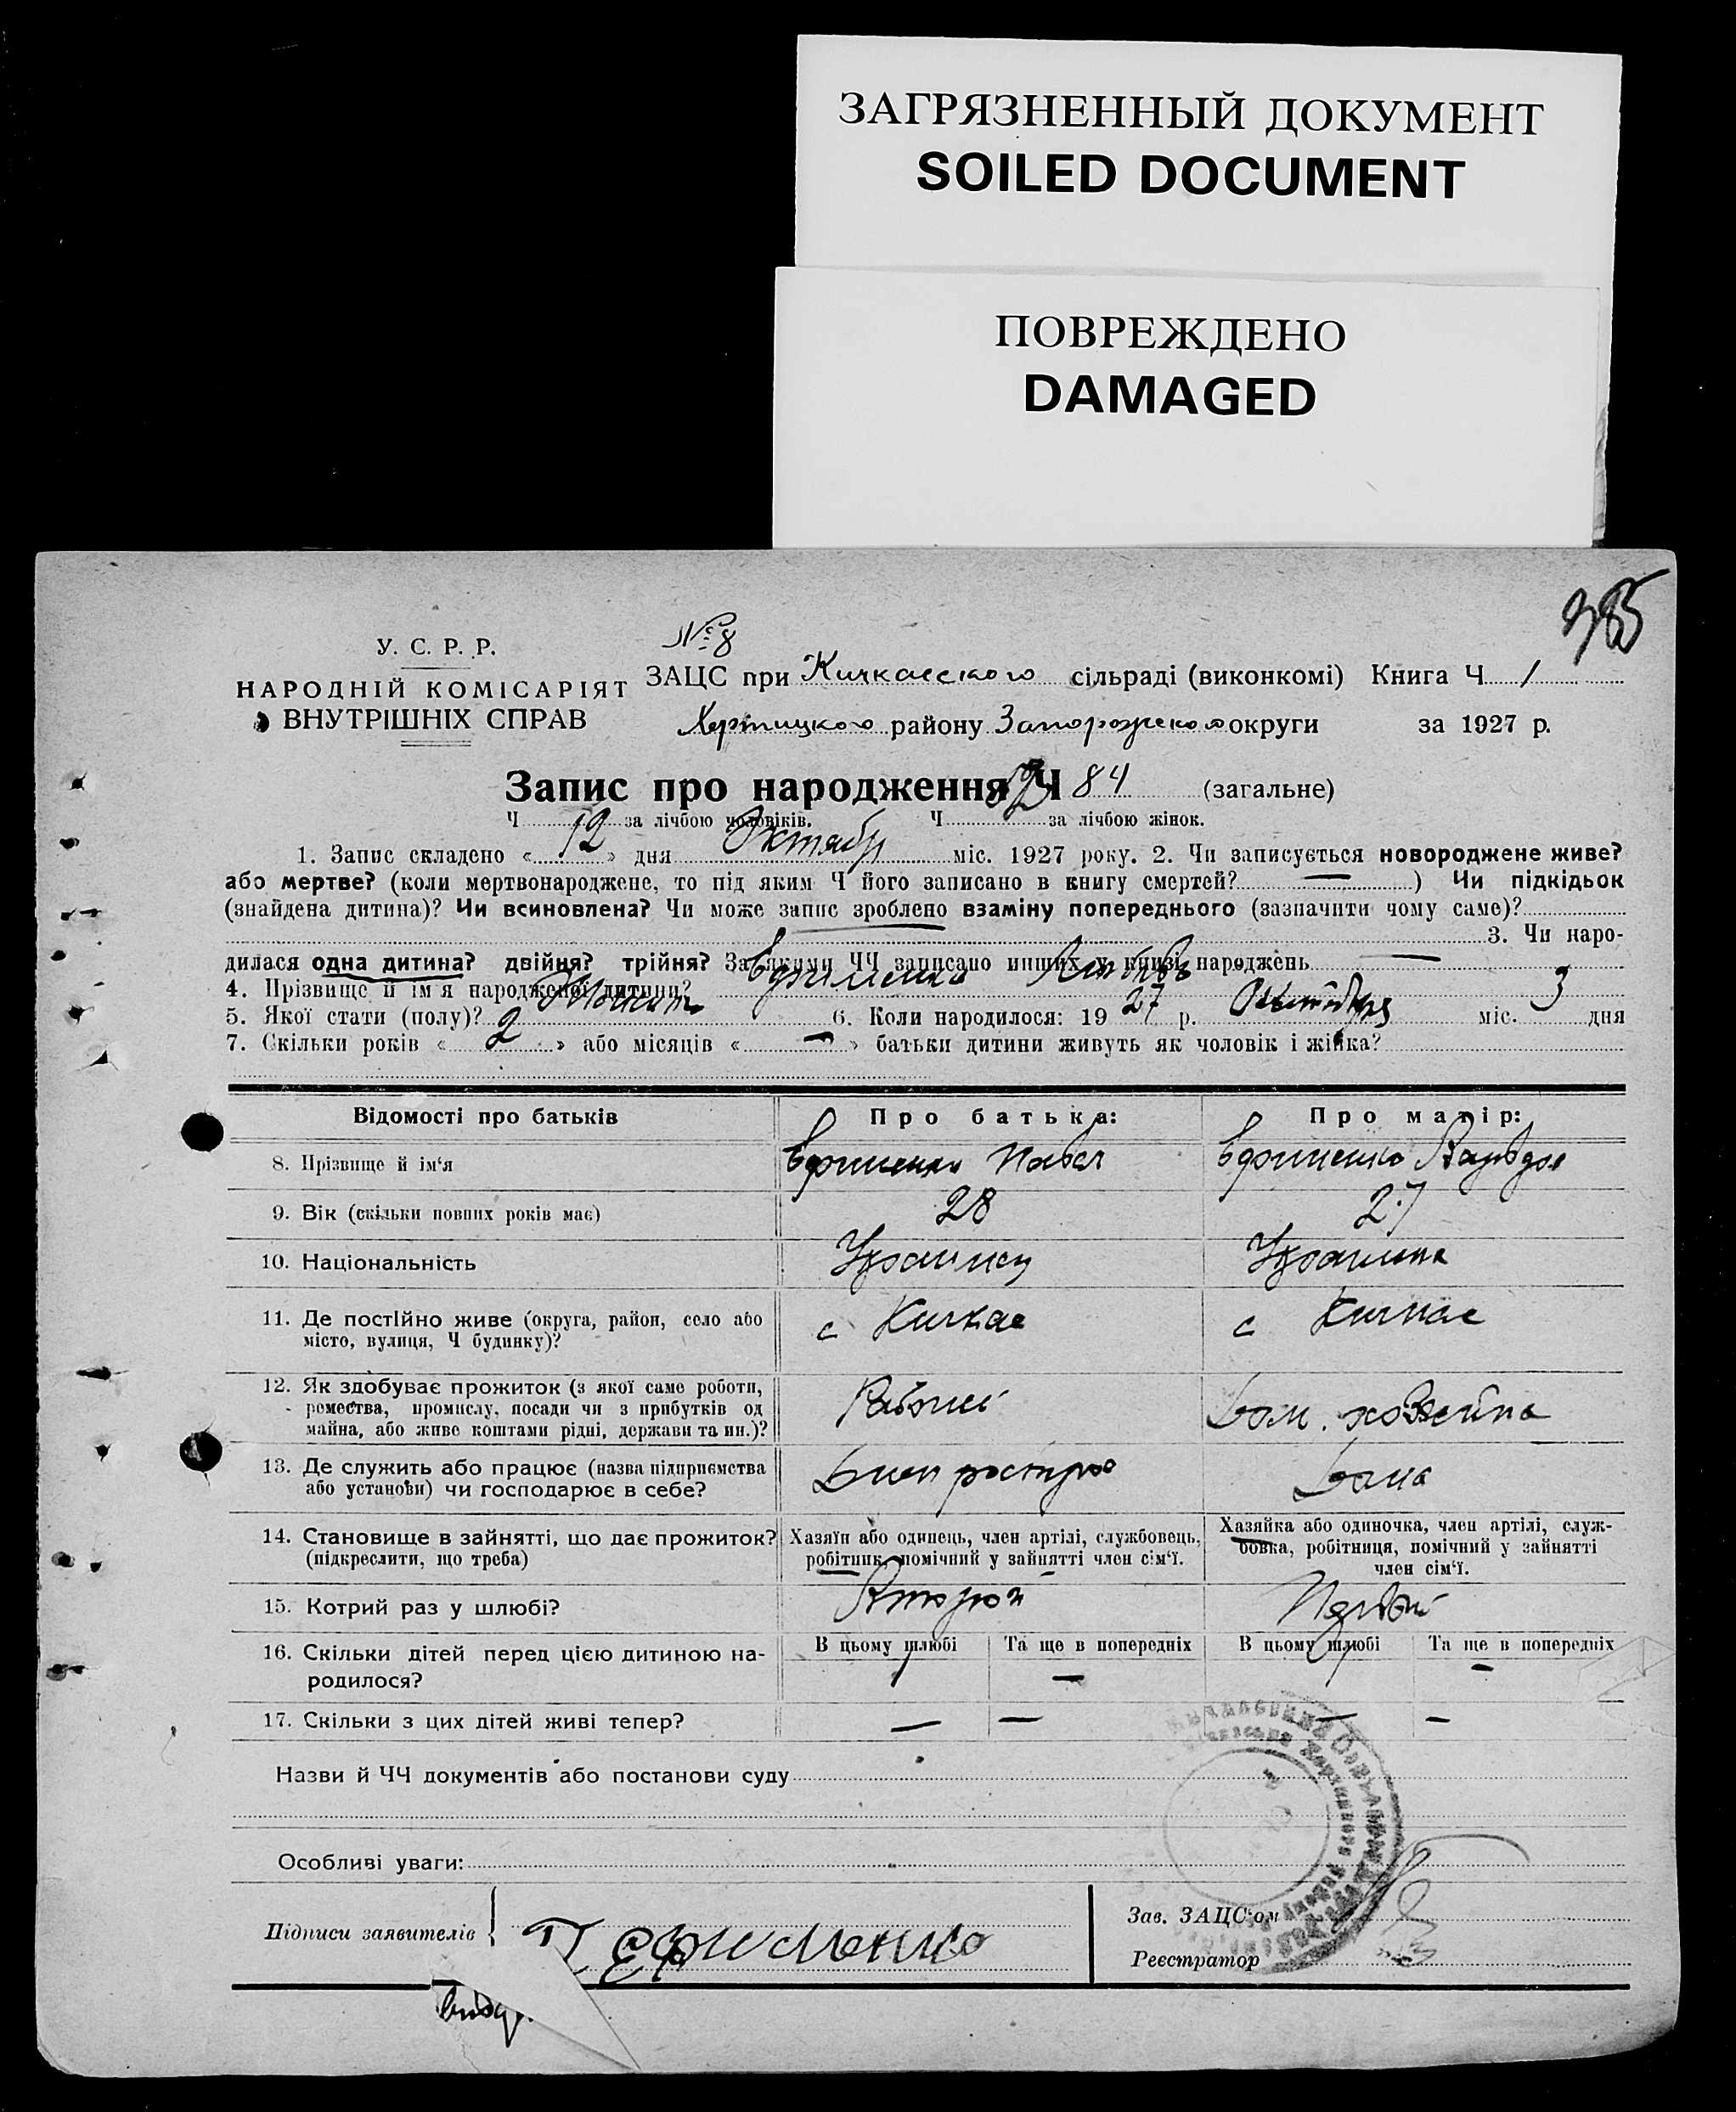 ЗАГРЯЗНЕННЫЙ ДОКУМЕНТ
SOILED DOCUMENT
ПОВРЕЖДЕНО
DAMAGED
У. С. Р. Р.
НАРОДНІЙ КОМІСАРІЯТ
ВНУТРІШНІХ СПРАВ
№ 8
ЗАЦС при Кичкасского сільраді (виконкомі) Книга Ч 1
Хортицкого району Запорожского округи за 1927 р.
Запис про народження Ч 84 (загальне)
Ч за лічбою чоловіків. Ч за лічбою жінок.
1. Запис складено « 12 » дня Октябр міс. 1927 року. 2. Чи записується новороджене живе?
або мертве? (коли мертвонароджене, то під яким Ч його записано в книгу смертей? — ) Чи підкідьок
(знайдена дитина)? Чи всиновлена? Чи може запис зроблено взаміну попереднього (зазначити чому саме)?
3. Чи наро-
дилася одна дитина? двійня? трійня? За якими ЧЧ записано инших у книзі народжень —
4. Прізвище й ім'я народженої дитини? Ефименко
5. Якої стати (полу)? 6. Коли народилося: 1927 р. Октября міс. 3 дня
7. Скільки років « 2 » або місяців « — » батьки дитини живуть як чоловік і жінка?
Відомості про батьків Про батька: Про матір:
8. Прізвище й ім'я Ефименко Павел Ефименко
9. Вік (скільки повних років має) 28 27
10. Національність Украинец Украинка
11. Де постійно живе (округа, район, село або
місто, вулиця, Ч будинку)? с Кичкас с Кичкас
12. Як здобуває прожиток (з якої саме роботи,
ремества, промислу, посади чи з прибутків од
майна, або живе коштами рідні, держави та ин.)? Рабочий Дом. хозяйка
13. Де служить або працює (назва підприємства
або установи) чи господарює в себе? Днепрострое Дома
14. Становище в зайнятті, що дає прожиток?
(підкреслити, що треба)
Хазяїн або одинець, член артілі, службовець,
робітник, помічний у зайнятті член сім'ї.
Хазяйка або одиночка, член артілі, служ-
бовка, робітниця, помічний у зайнятті
член сім'ї.
15. Котрий раз у шлюбі? Второй Первый
16. Скільки дітей перед цією дитиною на-
родилося?
В цьому шлюбі Та ще в попередніх В цьому шлюбі Та ще в попередніх
1 — 1 —
17. Скільки з цих дітей живі тепер? — — — —
Назви й ЧЧ документів або постанови суду
Особливі уваги:
Підписи заявителів П Ефименко
Зав. ЗАЦС'ом
Реєстратор